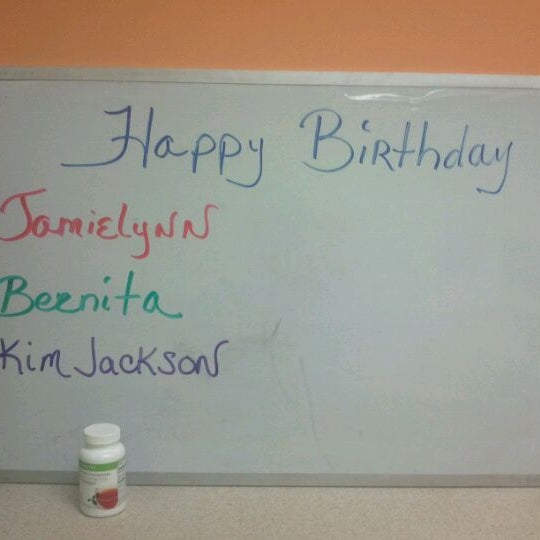 Happy Birthday
JamieLyNN
Beenita
Kim JacksoN